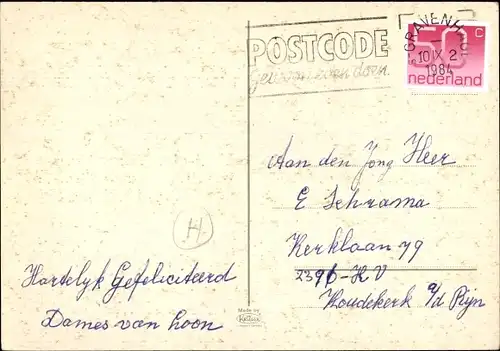 POSTCODE
gewoon even doen.
'S-GRAVENHAGE
10 IX 2
1984
50 C
nederland
Aan den Jong Heer
E Schrama
Kerklaan 79
2396-HV
Koudekerk a/d Rijn
H
Hartelyk Gefeliciteerd
Dames van Loon
Made by